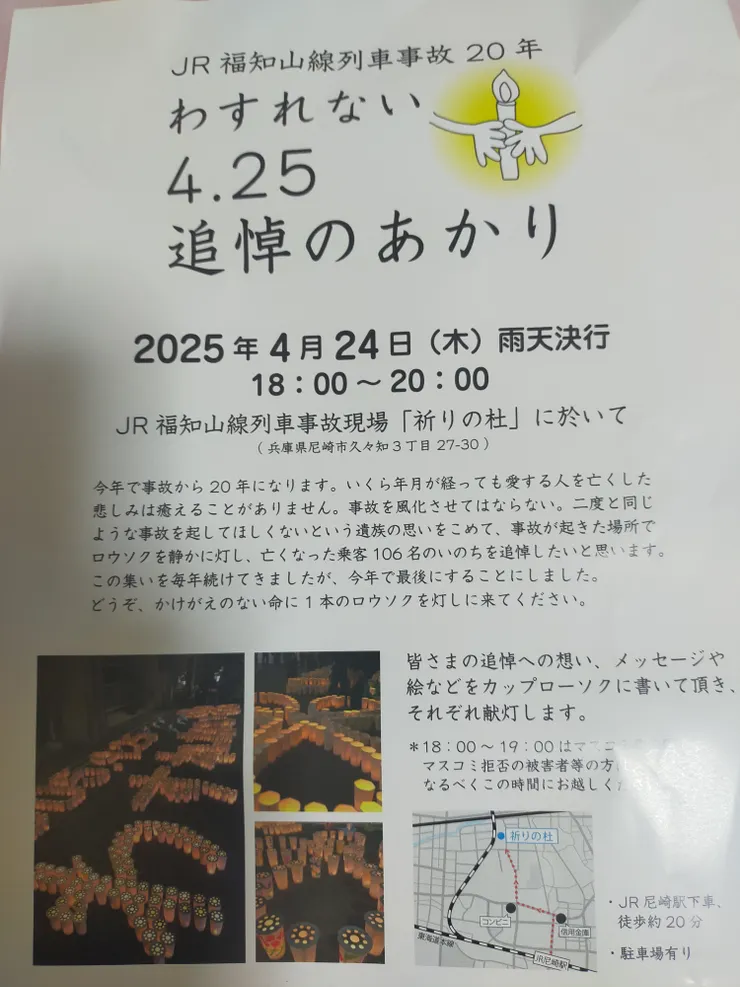 JR 福知山線列車事故 20 年
わすれない
4.25
追悼のあかり
2025 年 4 月 24 日（木）雨天決行
18：00 ～ 20：00
JR 福知山線列車事故現場「祈りの杜」に於いて
（ 兵庫県尼崎市久々知 3 丁目 27-30 ）
今年で事故から 20 年になります。いくら年月が経っても愛する人を亡くした
悲しみは癒えることがありません。事故を風化させてはならない。二度と同じ
ような事故を起してほしくないという遺族の思いをこめて、事故が起きた場所で
ロウソクを静かに灯し、亡くなった乗客 106 名のいのちを追悼したいと思います。
この集いを毎年続けてきましたが、今年で最後にすることにしました。
どうぞ、かけがえのない命に 1 本のロウソクを灯しに来てください。
皆さまの追悼への想い、メッセージや
絵などをカップローソクに書いて頂き、
それぞれ献灯します。
＊18：00 ～ 19：00 はマスコ
マスコミ拒否の被害者等の方
なるべくこの時間にお越しくだ
祈りの杜
コンビニ
信用金庫
東海道本線
JR尼崎駅
・JR 尼崎駅下車、
徒歩約 20 分
・駐車場有り